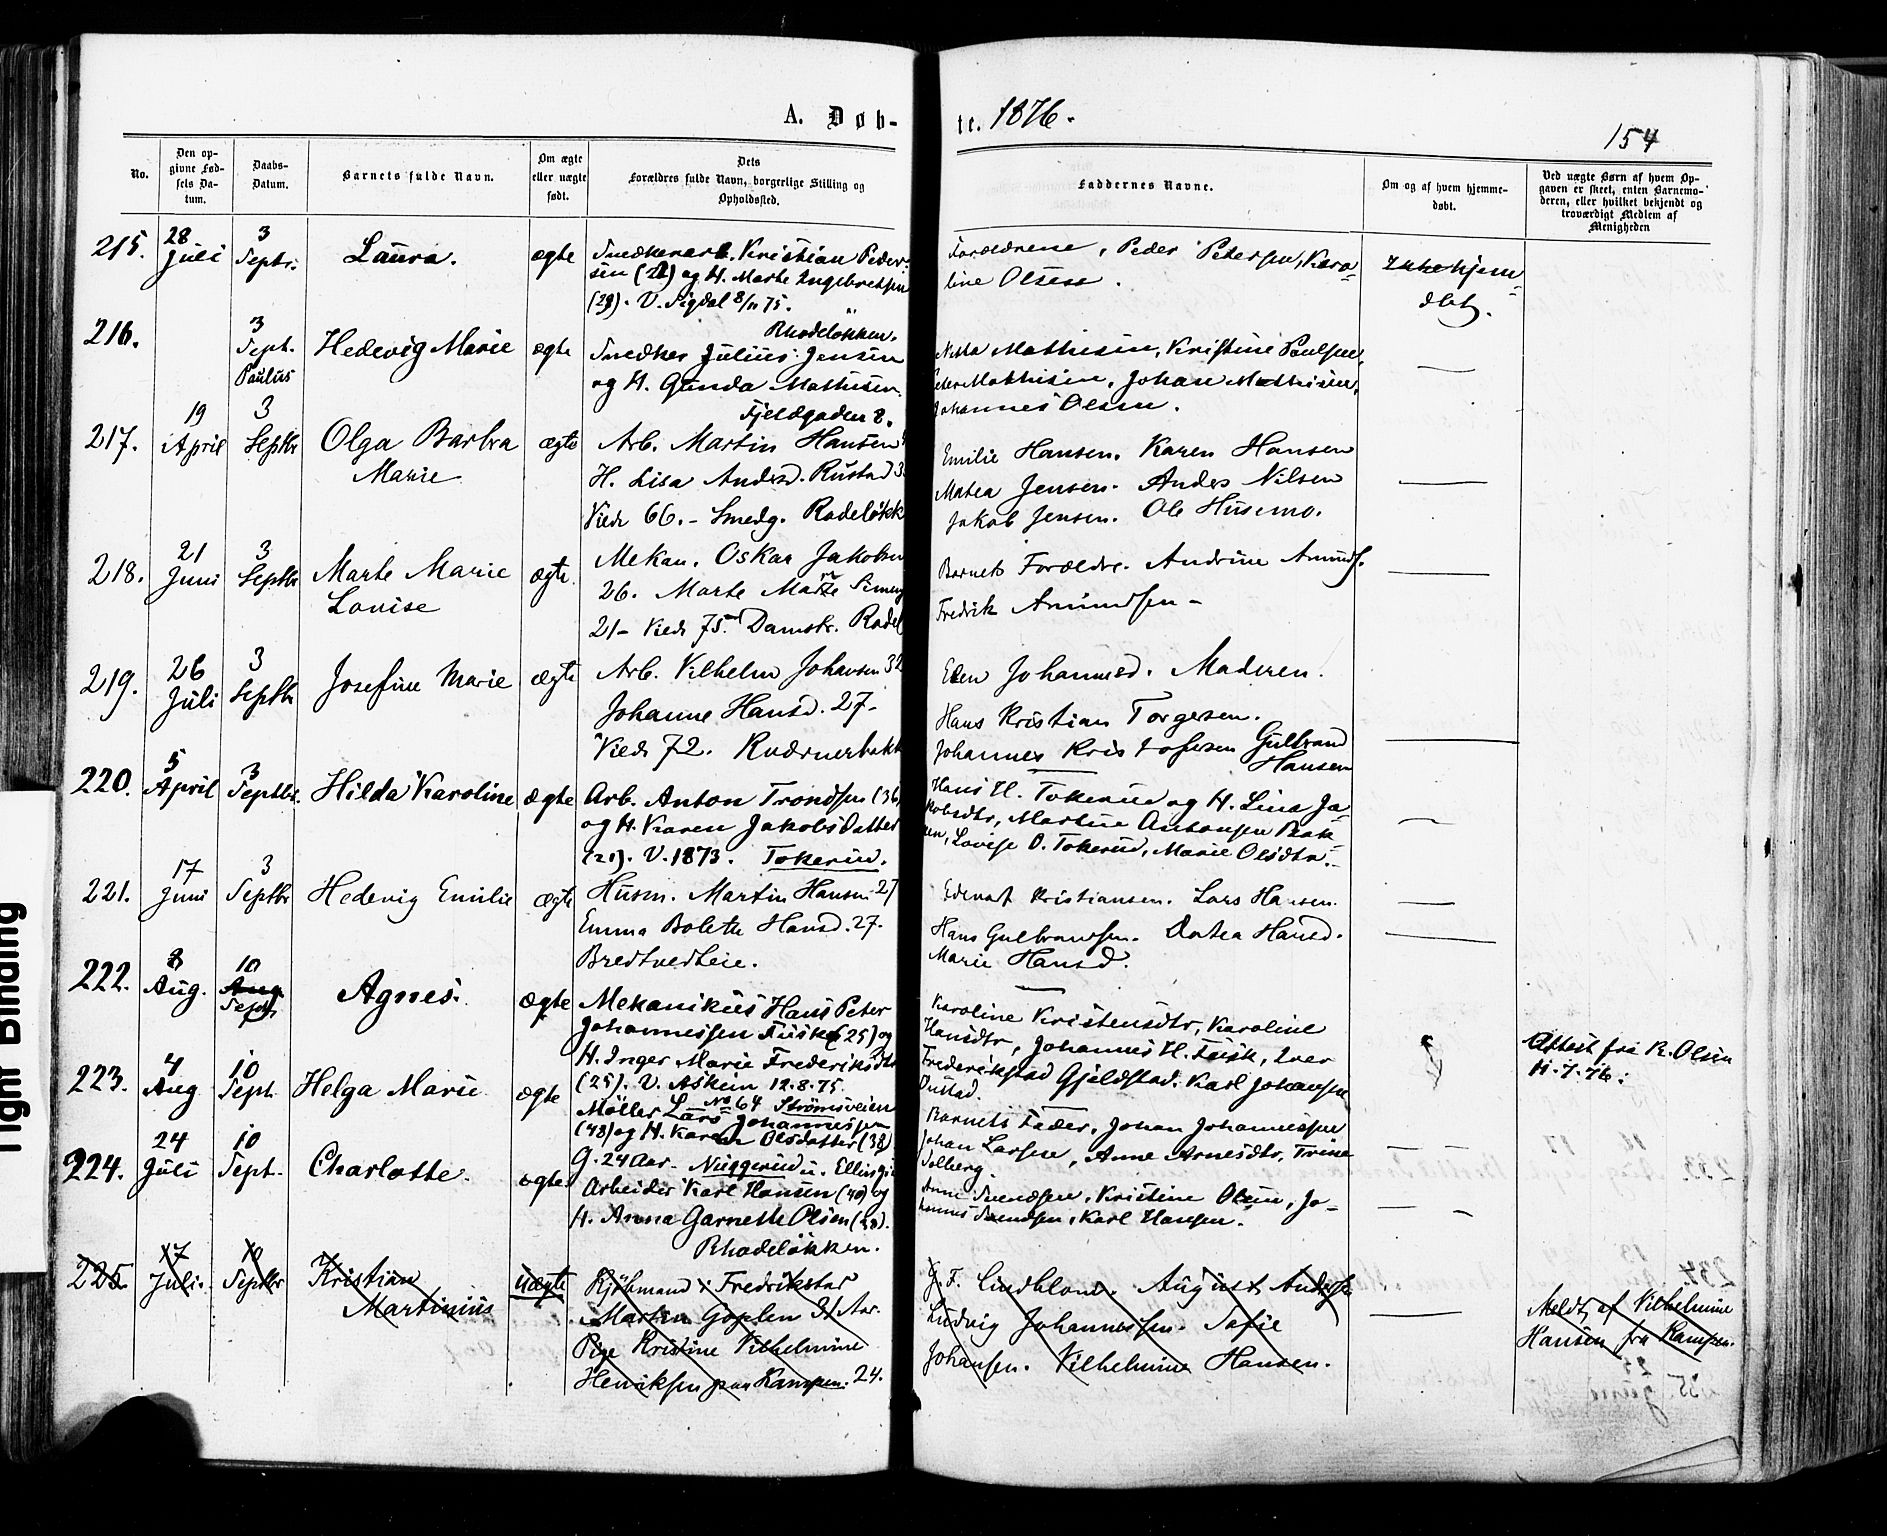 A. Døb-
te. 1876.
154
No.
Den op-
givne Fød-
sels Da-
tum.
Daabs-
Datum.
Barnets fulde Navn.
Om ægte
eller uægte
født.
Dets
Forældres fulde Navn, borgerlige Stilling og
Opholdssted.
Faddernes Navne.
Om og af hvem hjemme-
døbt.
Ved uægte Børn af hvem Op-
gaven er skeet, enten Barnemo-
deren, eller hvilket bekjendt og
troværdigt Medlem af
Menigheden
215. 28 Juli 3 Septr. Laura. ægte
Snedkerarb. Kristian Peder-
sen (22) og H. Marte Ingebretsen
(29). V. Sigdal 8/11 75.
Forældrene, Peder Petersen, Karo-
line Olsen.
Ikke hjem-
dbt.
216. 3 Sept. Paulus Hedevig Marie ægte
Rhodeløkken.
Snedker Julius Jensen
og H. Gunda Mathisen
Fjeldgaden 8.
Mathisen, Kristine Paulsen,
Peter Mathisen, Johan Mathisen,
Johannes Olsen.
217. 19 April 3 Septbr Olga Barbra
Marie ægte
Arb. Martin Hansen
H. Lisa Andersd. Rustad 3
Viede 66. - Smedg. Rodeløkk
Emilie Hansen. Karen Hansen
Matea Jensen. Anders Nilsen
Jakob Jensen. Ole Husemo.
218. 21 Juni 3 Septbr Marte Marie
Louise ægte.
Mekan. Oskar Jakobsen
26. Marte Marie
21 - Viede 75. Damstr. Rodel
Barnets Forældre. Andrine Amunds.
Fredrik Amundsen -
219. 26 Juli 3 Septbr Josefine Marie ægte
Arb. Vilhelm Johansen 32
Johanne Hansd. 27.
Viede 72. Kværnerbakk
Ellen Johannesd. Moderen.
Hans Kristian Torgersen.
Johannes Kristofersen Gulbrand
Hansen
220. 5 April 3 Septbr. Hilda Karoline ægte
Arb. Anton Trondsen (36)
og H. Karen Jakobsdatter
(21). V. 1873. Tokerud.
Hans H. Tokerud og H. Lina Ja-
kobsdtr, Martin Antonsen Bak-
ken, Lovise O. Tokerud, Marie Olsdtr.
221. 17 Juni 3 Septbr Hedevig Emilie ægte
Husm. Martin Hansen 27
Emma Bolette Hansd. 27.
Bredtvedteie.
Edevart Kristiansen. Lars Hansen.
Hans Gulbrandsen. Dortea Hansd.
Marie Hansd.
222. 8 Aug. 10 Aug. Sept. Agnes. ægte
Mekanikus Hans Peter
Johannessen Fusk (25) og
H. Inger Marie Frederiksdtr
(25). V. Askim 12.8.75.
No 64 Strømsveien
Karoline Kristensdtr, Karoline
Hansdtr, Johannes H. Fusk, Iver
Frederikstad Gjeldstad. Karl Johansen
Dustad.
Attest fra R. Olsen
11.7.76.
223. 4 Aug 10 Sept. Helga Marie ægte
Møller Lars Johannessen
(48) og H. Karen Olsdatter (38)
G. 24 Aar. Nuggerud u. Ellingsr
Barnets Fader, Johan Johannessen
Johan Larsen, Anne Arnesdtr, Trine
Solberg
224. 24 Juli 10 Sept. Charlotte. ægte
Arbeider Karl Hansen (40) og
H. Anna Garnette Olsen (28).
Rhodeløkken.
Anne Svendsen, Kristine Olsen, Jo-
hannes Svendsen, Karl Hansen.
225. 17 Juli. 10 Septbr Kristian
Martinius uægte
Kjøbmand i Fredrikstad
Martin Goplen 21 Aar.
Pige Kristine Vilhelmine
Henriksen paa Kampen. 24.
F. Lindblom. August Andersen
Ludvig Johannessen. Sofie
Johansen. Vilhelmine Hansen.
Meldt af Vilhelmine
Hansen fra Kampen.
Tight Binding